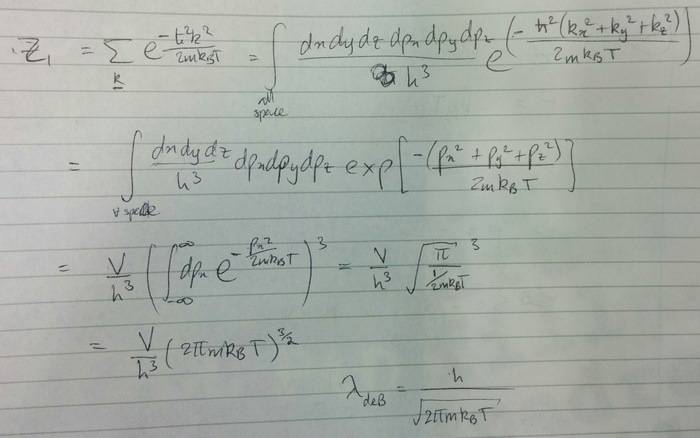 Z₁ = Σ_k e^(-ħ²k²/2mk_BT) = ∫_all space dxdydz dp_x dp_y dp_z / h³ e^(-ħ²(k_x² + k_y² + k_z²)/2mk_BT)
= ∫_∀ space dxdydz/h³ dp_x dp_y dp_z exp[-(p_x² + p_y² + p_z²)/2mk_BT]
= V/h³ (∫_-∞^∞ dp_x e^(-p_x²/2mk_BT))³ = V/h³ √(π/(1/2mk_BT))³
= V/h³ (2πmk_BT)^(3/2)
λ_deB = h/√(2πmk_BT)